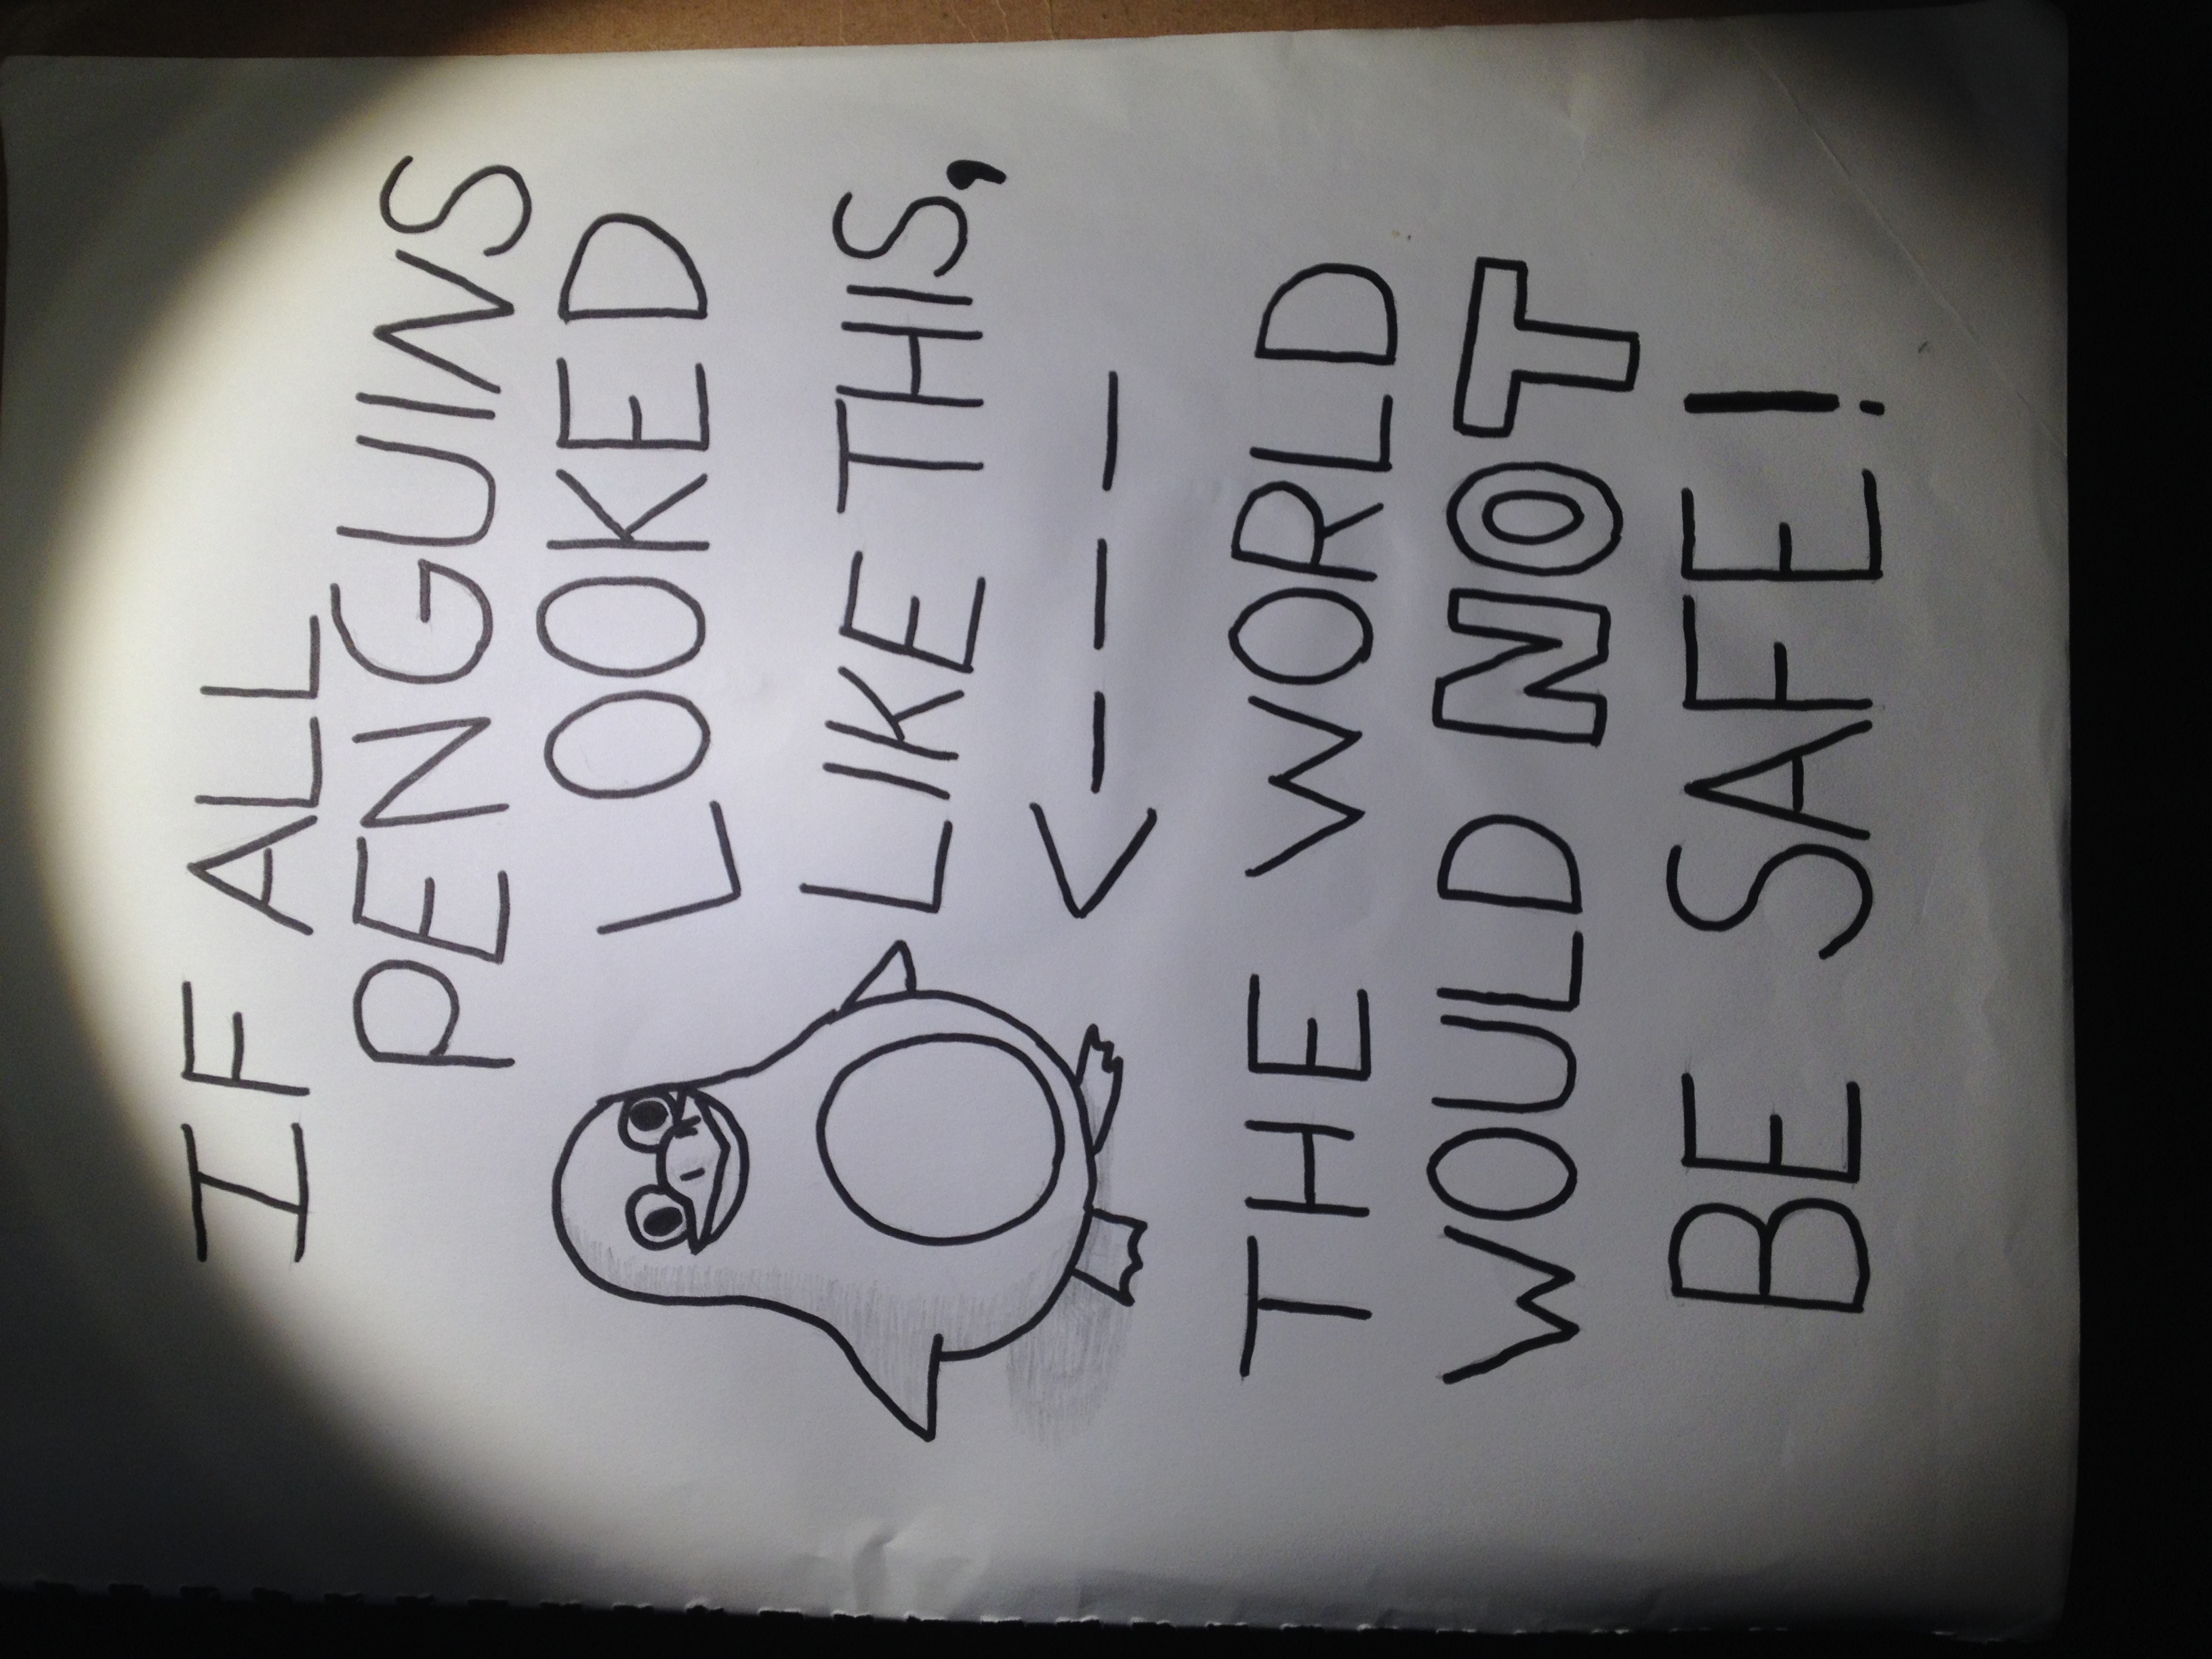 IF ALL
PENGUINS
LOOKED
LIKE THIS,
THE WORLD
WOULD NOT
BE SAFE!